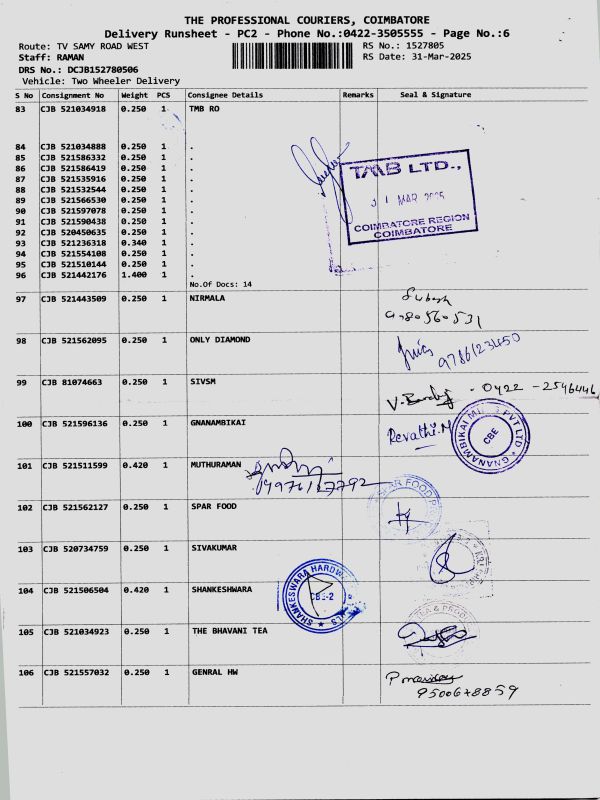 THE PROFESSIONAL COURIERS, COIMBATORE
Delivery Runsheet - PC2 - Phone No.:0422-3505555 - Page No.:6
Route: TV SAMY ROAD WEST
RS No.: 1527805
Staff: RAMAN
RS Date: 31-Mar-2025
DRS No.: DCJB152780506
Vehicle: Two Wheeler Delivery
S No Consignment No Weight PCS Consignee Details Remarks Seal & Signature
83 CJB 521034918 0.250 1 TMB RO
84 CJB 521034888 0.250 1 .
85 CJB 521586332 0.250 1 .
86 CJB 521586419 0.250 1 .
87 CJB 521535916 0.250 1 .
88 CJB 521532544 0.250 1 .
89 CJB 521566530 0.250 1 .
90 CJB 521597078 0.250 1 .
91 CJB 521590438 0.250 1 .
92 CJB 520450635 0.250 1 .
93 CJB 521236318 0.340 1 .
94 CJB 521554108 0.250 1 .
95 CJB 521510144 0.250 1 .
96 CJB 521442176 1.400 1 .
TMB LTD.,
MAR 2025
COIMBATORE REGION
COIMBATORE
No.Of Docs: 14
97 CJB 521443509 0.250 1 NIRMALA
98 CJB 521562095 0.250 1 ONLY DIAMOND
9786123450
99 CJB 81074663 0.250 1 SIVSM
0422 - 2546446
100 CJB 521596136 0.250 1 GNANAMBIKAI
Revathi.M
GNANAMBIKAI MILLS PVT LTD
CBE
101 CJB 521511599 0.420 1 MUTHURAMAN
102 CJB 521562127 0.250 1 SPAR FOOD
SPAR FOOD
103 CJB 520734759 0.250 1 SIVAKUMAR
104 CJB 521506504 0.420 1 SHANKESHWARA
SHANKESWARA HARDW
CBE-2
105 CJB 521034923 0.250 1 THE BHAVANI TEA
TEA & PROD
106 CJB 521557032 0.250 1 GENRAL HW